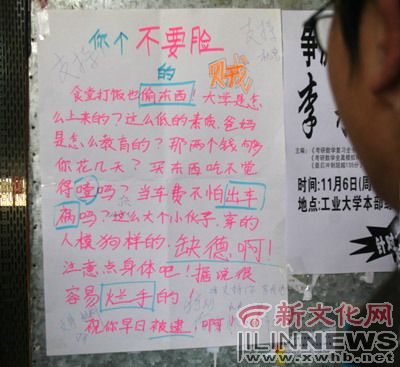 你个不要脸
的
贼,
支持
支持
食堂打饭也偷东西！大学是怎
么上来的？这么低的素质，爸妈
是怎么教育的？那两个钱够
你花几天？买东西吃不觉
得噎吗？当车费不怕出车
祸吗？这么大个小伙子，穿的
人模狗样的，缺德啊！
注意点身体吧！据说很
容易烂手的！
祝你早日被逮，啊
主编：
《考研数学
《考研数学
时间:11月6日(周
地点:工业大学本部
新文化网
JLINNEWS
www.xwhb.net